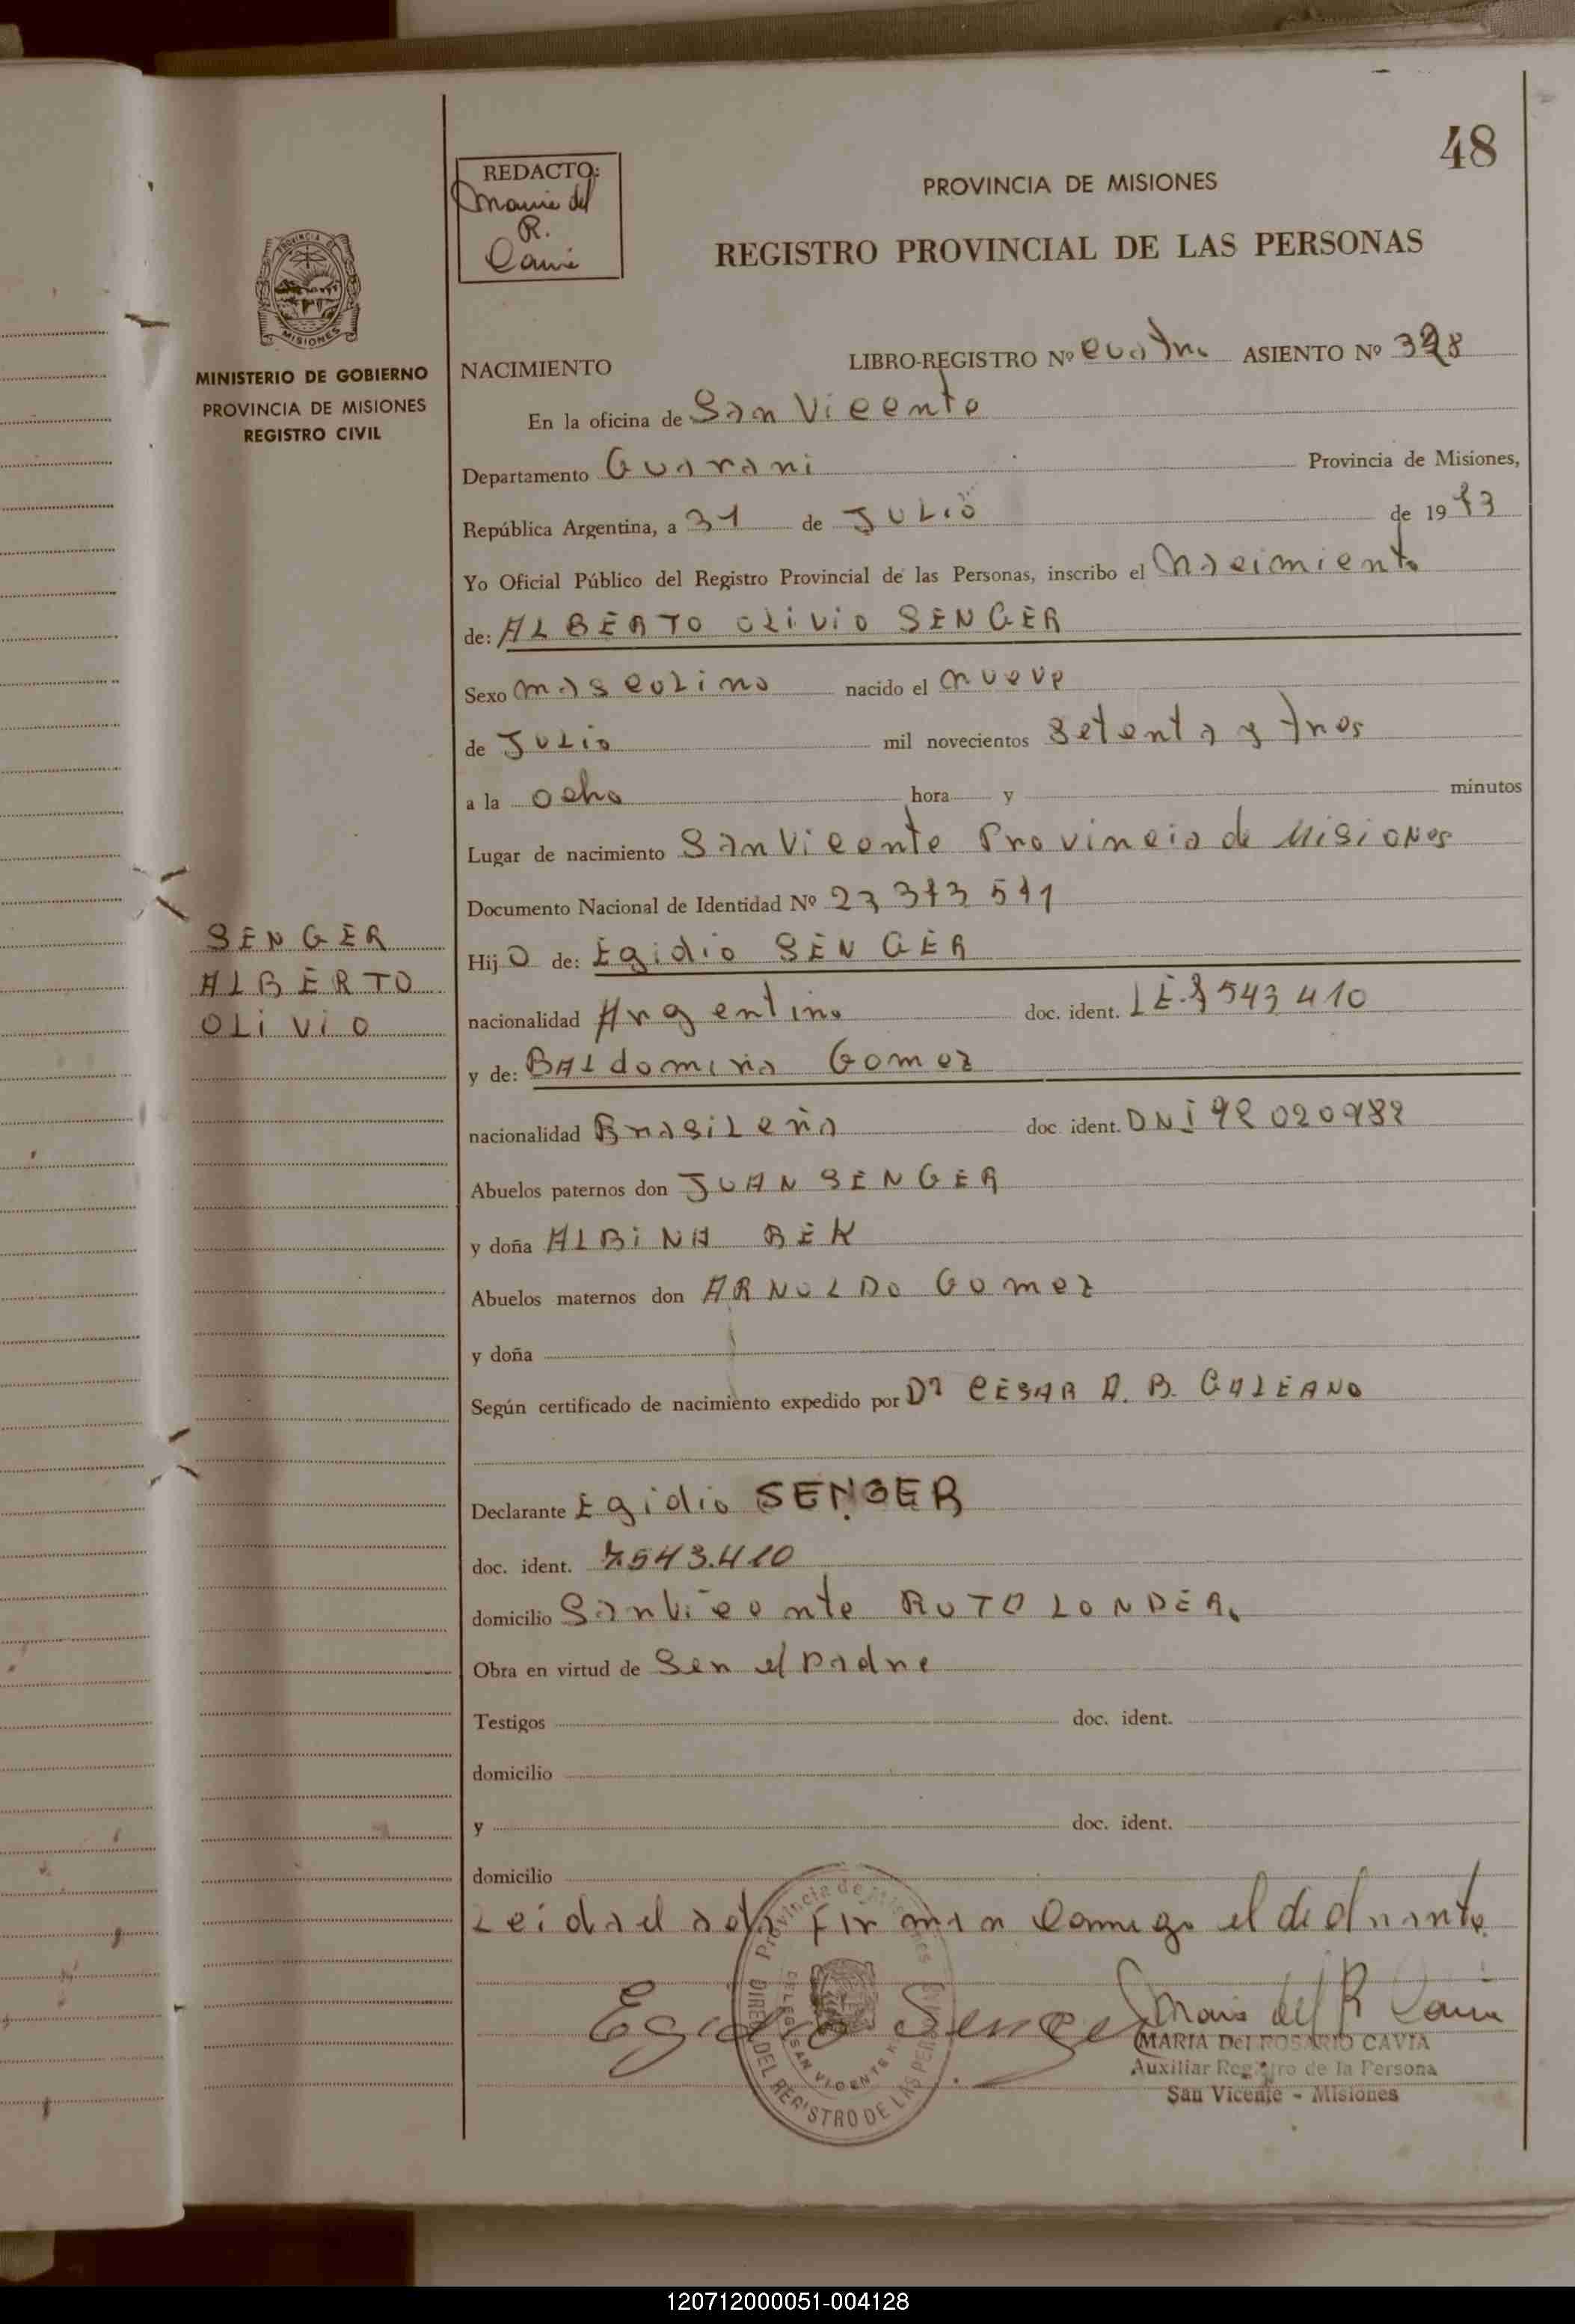 48
REDACTO:
Maria del
R.
Cavia
PROVINCIA DE MISIONES
REGISTRO PROVINCIAL DE LAS PERSONAS
MISIONES
MINISTERIO DE GOBIERNO
PROVINCIA DE MISIONES
REGISTRO CIVIL
NACIMIENTO LIBRO-REGISTRO Nº cuatro ASIENTO Nº
En la oficina de San Vicente
Departamento Guarani Provincia de Misiones,
República Argentina, a 31 de JULIO de 1973
Yo Oficial Público del Registro Provincial de las Personas, inscribo el Nacimiento
de: ALBERTO OLIVIO SENGER
Sexo masculino nacido el nueve
de Julio mil novecientos setenta y tres
a la ocho hora y minutos
Lugar de nacimiento San Vicente Provincia de Misiones
Documento Nacional de Identidad Nº
SENGER
ALBERTO
OLIVIO
Hijo de: Egidio SENGER
nacionalidad Argentino doc. ident. L.E. 7543410
y de: BALdomiria Gomez
nacionalidad Brasileña doc. ident. DNI
Abuelos paternos don JUAN SENGER
y doña ALBINA BEK
Abuelos maternos don ARNOLDO Gomez
y doña
Según certificado de nacimiento expedido por Dr CESAR A. B. GALEANO
Declarante Egidio SENGER
doc. ident. 7.543.410
domicilio San Vicente RUTA LONDER.
Obra en virtud de Ser el padre
Testigos doc. ident.
domicilio
y doc. ident.
domicilio
Leida el acta firman conmigo el declarante
Egidio Senger Maria del R Cavia
MARIA DEL ROSARIO CAVIA
Auxiliar Registro de la Persona
San Vicente - Misiones
Provincia de Misiones
DIREC. DEL REGISTRO DE LAS PER
SAN VICENTE
120712000051-004128